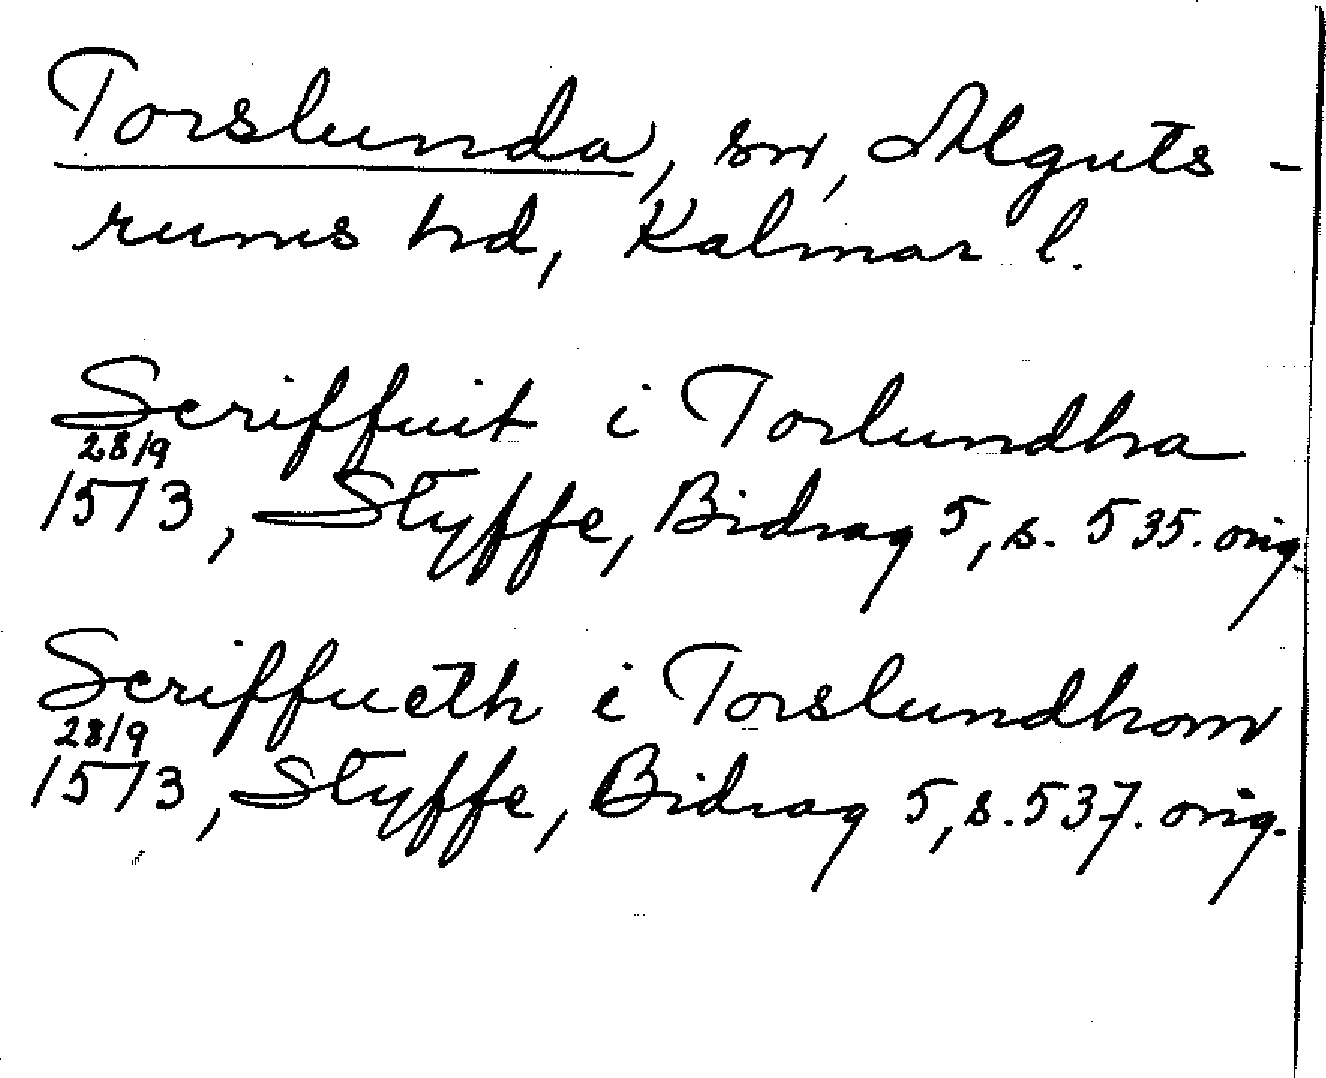 Torslunda, sn, Alguts-
rums hd, Kalmar l.
Scriffuit i Torlundha
28/9
1573, Styffe, Bidrag 5, s. 535. orig.
Scriffueth i Torslundhom
28/9
1573, Styffe, Bidrag 5, s. 537. orig.